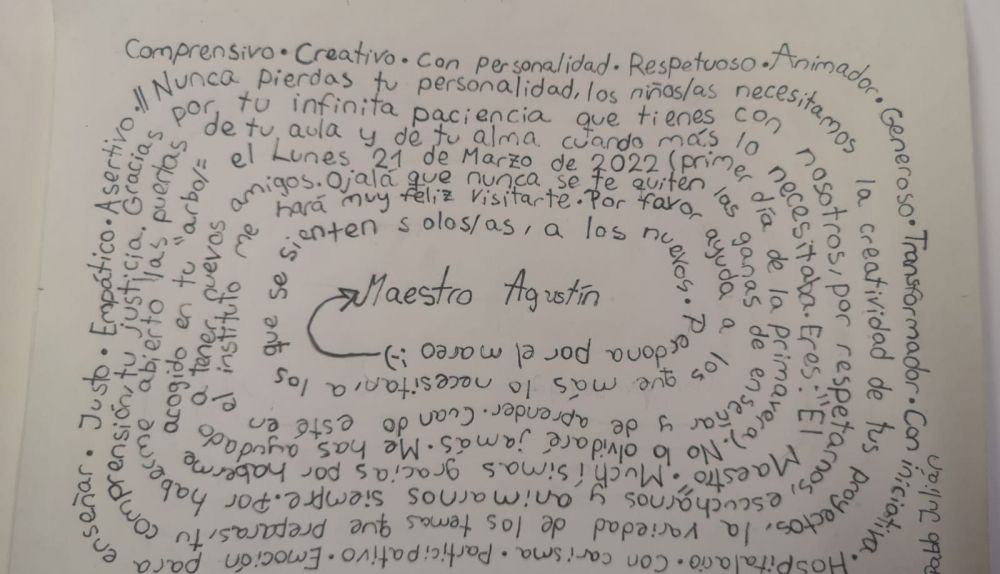 Comprensivo · Creativo · Con personalidad · Respetuoso · Animador · Generoso · Transformador · Con iniciativa ·
Hospitalario · Con carisma · Participativo · Emoción para enseñar · Justo · Empático · Asertivo ·
// Nunca pierdas tu personalidad, los niños/as necesitamos la creatividad de tus proyectos, la variedad de los temas que preparas, tu comprensión, tu justicia. Gracias
por tu infinita paciencia que tienes con nosotros, por respetarnos, escucharnos y animarnos siempre. Por haberme abierto las puertas
de tu aula y de tu alma cuando más lo necesitaba. Eres: "El Maestro". Muchísimas gracias por haberme acogido en tu "arbol"=
el Lunes 21 de Marzo de 2022 (primer día de la primavera). No lo olvidaré jamás. Me has ayudado a tener nuevos
amigos. Ojalá que nunca se te quiten las ganas de enseñar y de aprender. Cuando esté en el instituto me
hará muy feliz visitarte. Por favor ayuda a los que más lo necesitan, a los que se
sienten solos/as, a los nuevos. Perdona por el mareo :-)
Maestro Agustín